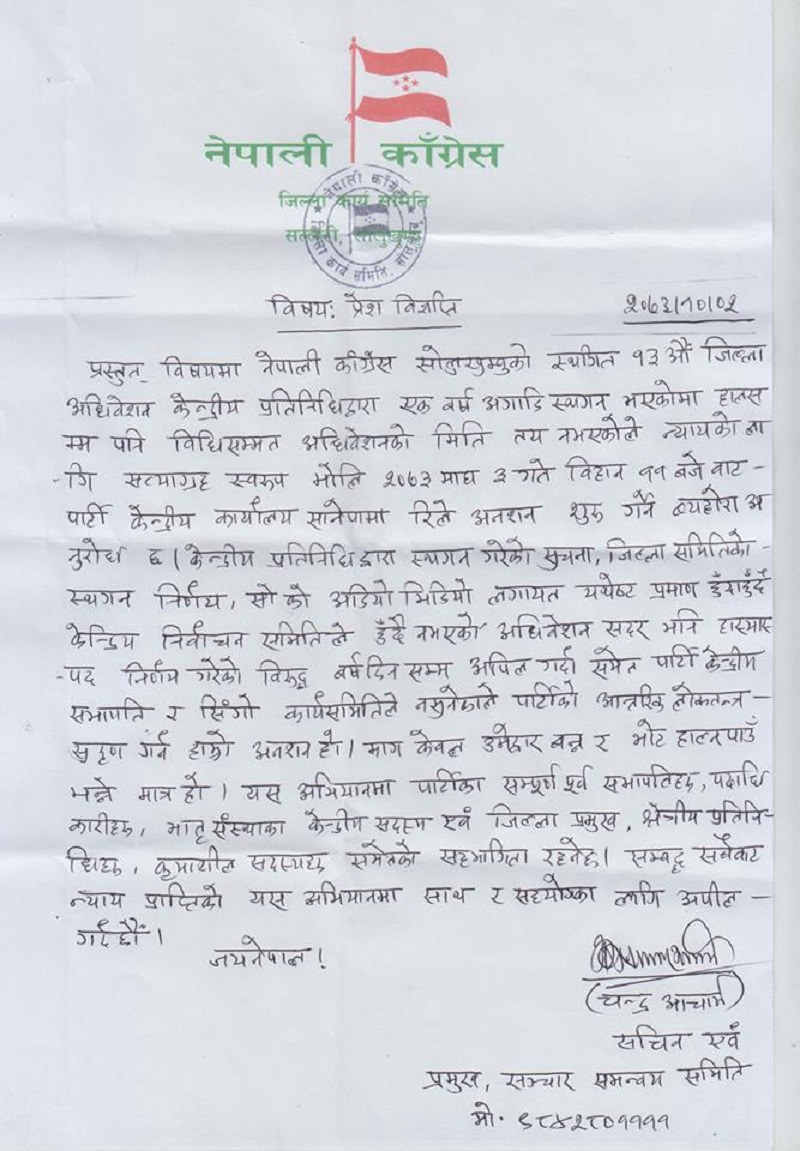 नेपाली काँग्रेस
जिल्ला कार्य समिति
सल्लेरी, सोलुखुम्बु
नेपाली काँग्रेस
जिल्ला कार्य समिति, सोलुखुम्बु
विषय: प्रेश विज्ञप्ति
२०७३।१०।०२
प्रस्तुत विषयमा नेपाली काँग्रेस सोलुखुम्बुको स्थगित १३ औं जिल्ला
अधिवेशन केन्द्रीय प्रतिनिधिद्वारा एक वर्ष अगाडि स्थगन भएकोमा हालस
म्म पनि विधिसम्मत अधिवेशनको मिति तय नभएकोले न्यायको ला
-गि सत्याग्रह स्वरुप भोलि २०७३ माघ ३ गते विहान ११ बजे बाट -
पार्टी केन्द्रीय कार्यालय सानेपामा रिले अनशन शुरु गर्ने व्यहोरा अ
नुरोध छ। केन्द्रीय प्रतिनिधिद्वारा स्थगन गरेको सुचना, जिल्ला समितिको -
स्थगन निर्णय, सो को अडियो भिडियो लगायत यथेष्ट प्रमाण हुँदाहुँदै
केन्द्रिय निर्वाचन समितिले हुँदै नभएको अधिवेशन सदर भनि हास्यास
-पद निर्णय गरेको विरुद्ध वर्षदिन सम्म अपिल गर्दा समेत पार्टी केन्द्रीय
सभापति र सिंगो कार्यसमितिले नसुनेकाले पार्टीको आन्तरिक लोकतन्त्र -
सुदृण गर्न हाम्रो अनशन हो। माग केवल उमेद्वार बन्न र भोट हाल्न पाउँ
भन्ने मात्र हो। यस अभियानमा पार्टीका सम्पूर्ण पूर्व सभापतिहरु, पदाधि
कारीहरु, भातृ संस्थाका केन्द्रीय सदस्य एवं जिल्ला प्रमुख, क्षेत्रीय प्रतिनि-
धिहरु, कृयाशील सदस्यहरु समेतको सहभागिता रहनेछ। सम्बद्ध सबैबाट
न्याय प्राप्तिको यस अभियानमा साथ र सहयोगका लागि अपील -
गर्दछौं।
जयनेपाल!
(चन्द्र आचार्य)
सचिव एवं
प्रमुख, सञ्चार समन्वय समिति
मो. ९८४२८०११११